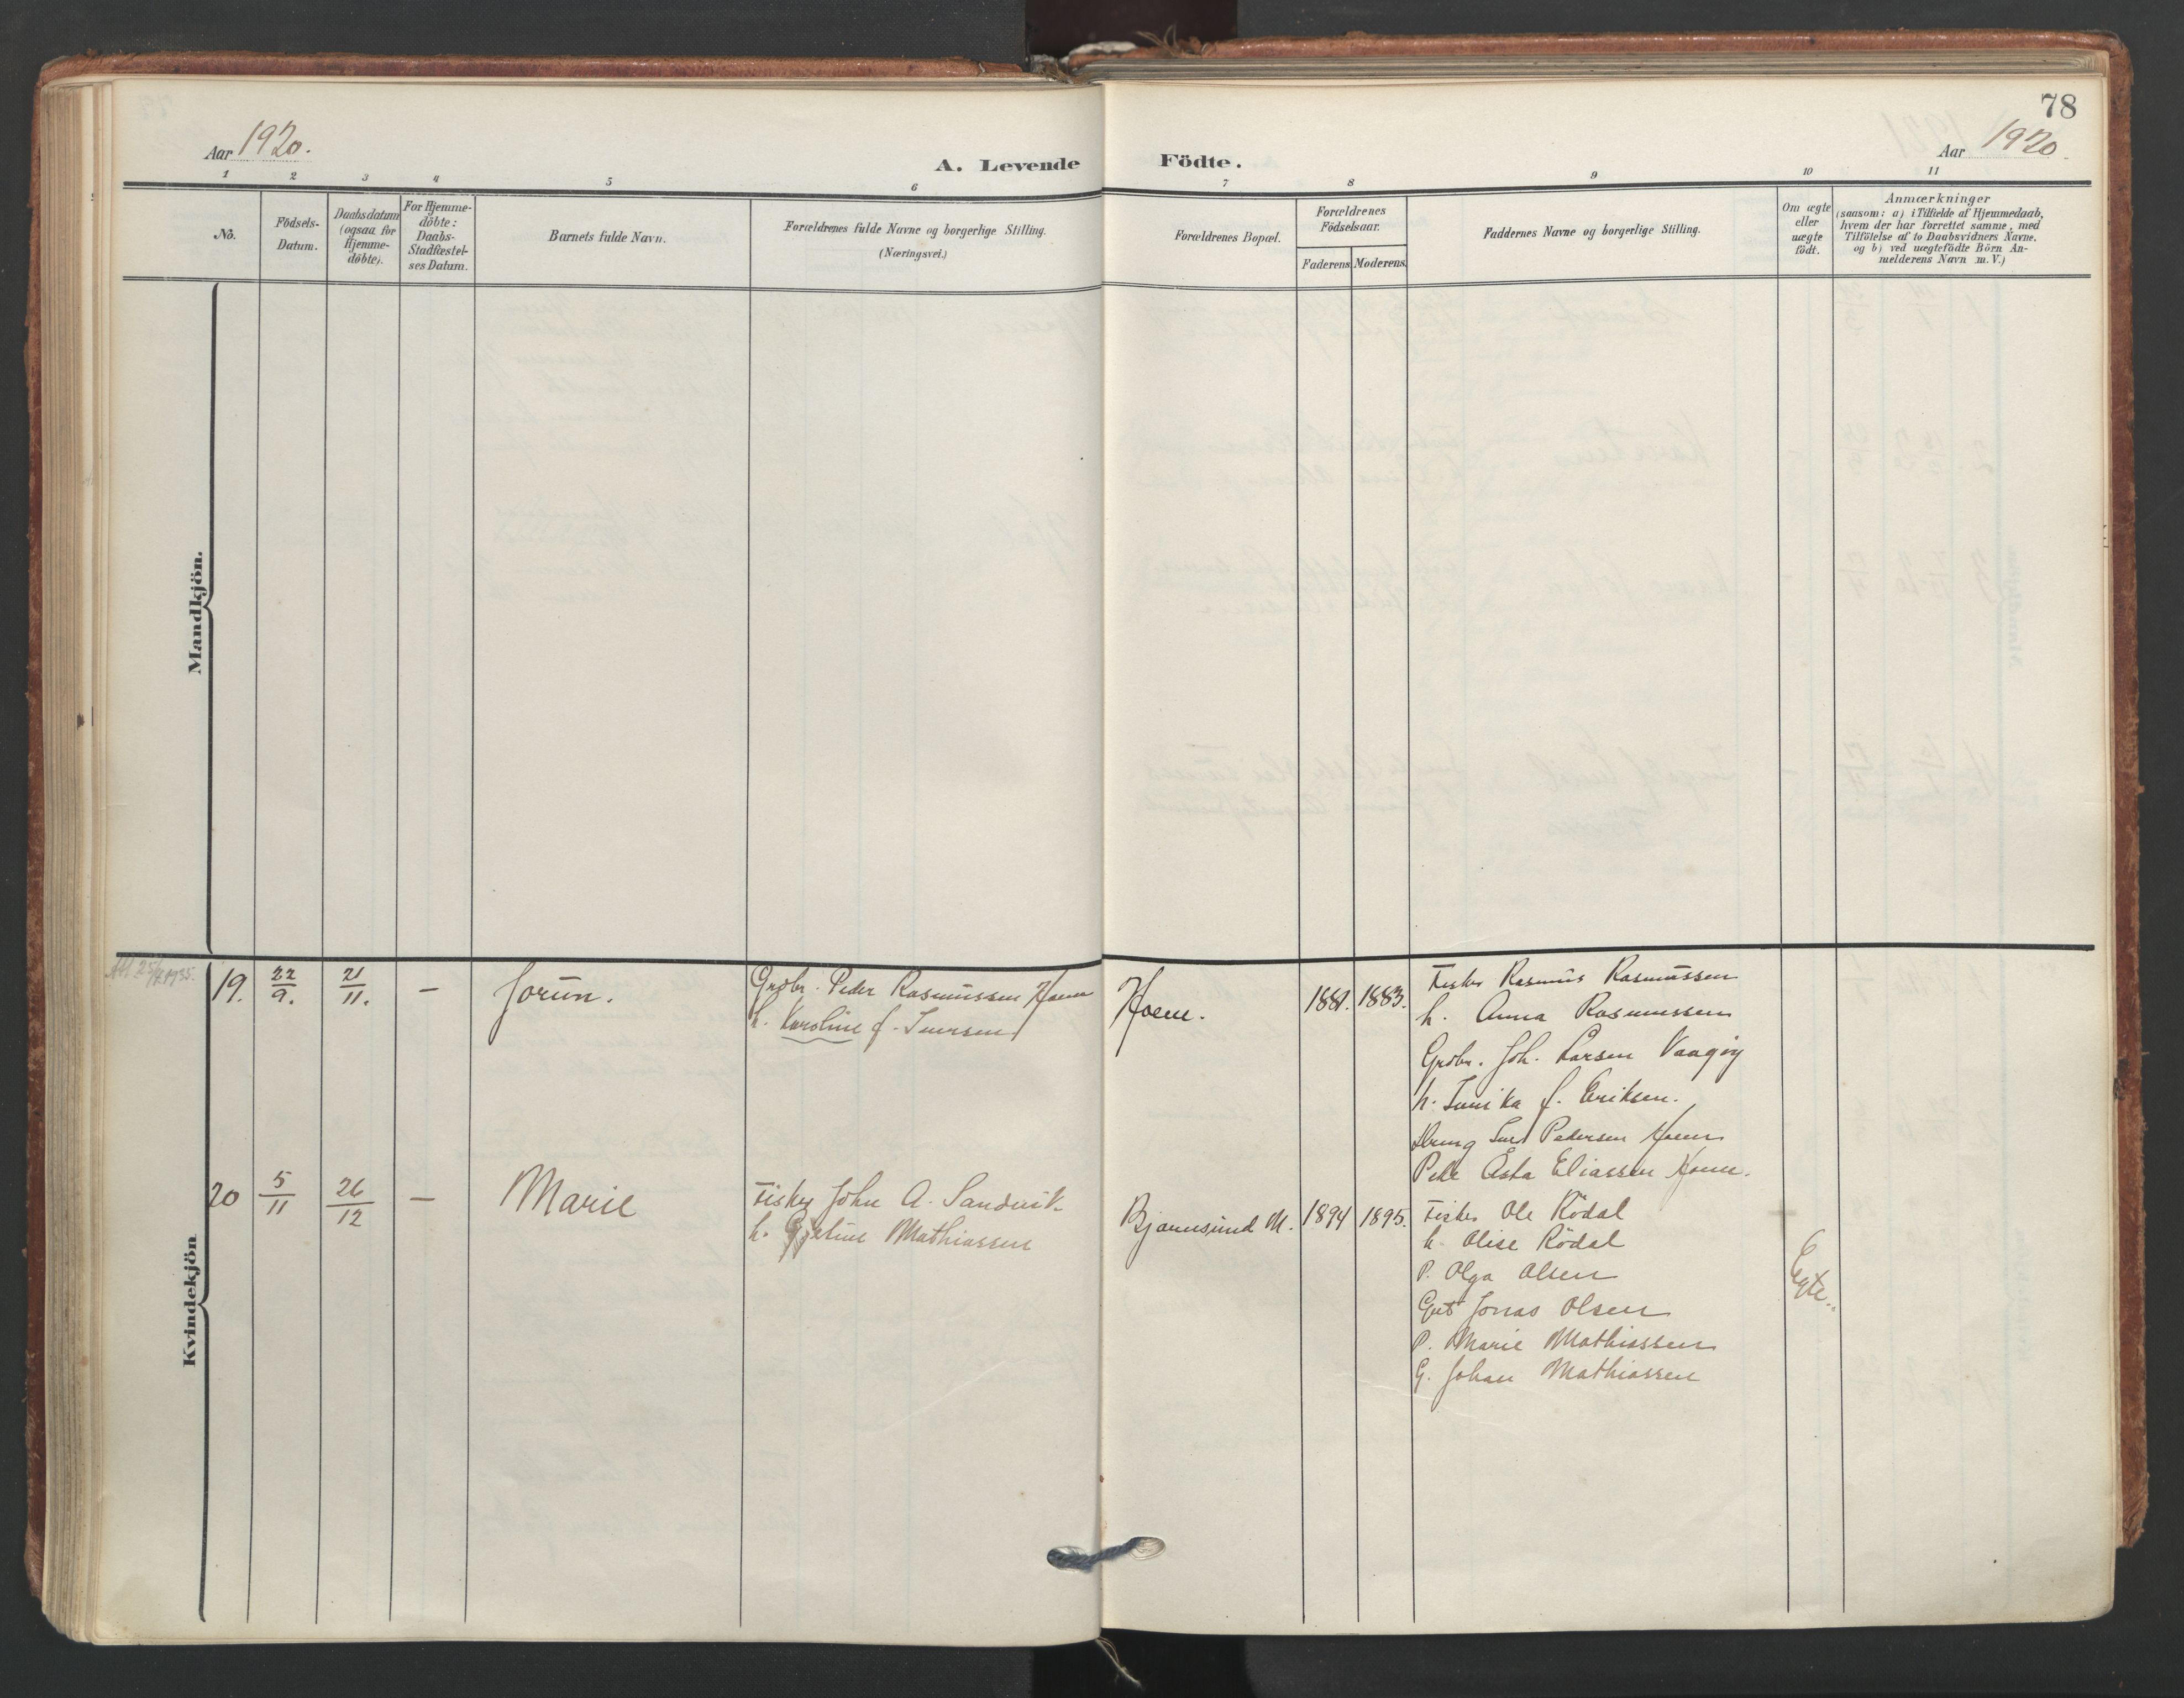 78
Aar 1920.
A. Levende Födte.
Aar 1920.
1 2 3 4 5 6 7 8 9 10 11
No.
Födsels-
Datum.
Daabsdatum
(ogsaa for
Hjemme-
döbte).
For Hjemme-
döbte:
Daabs-
Stadfæstel-
ses Datum.
Barnets fulde Navn.
Forældrenes fulde Navne og borgerlige Stilling.
(Næringsvei.)
Forældrenes Bopæl.
Forældrenes
Födselsaar.
Faderens. Moderens.
Faddernes Navne og borgerlige Stilling.
Om ægte
eller
uægte
födt.
Anmærkninger
(saasom: a) i Tilfælde af Hjemmedaab,
hvem der har forrettet samme, med
Tilföielse af to Daabsvidners Navne.
og b) ved uægtefödte Börn An-
melderens Navn m. V.)
Mandkjön.
Kvindekjön
19. 22/9. 21/11. — Jorun.
Grdbr. Peder Rasmussen Hoem
h. Karoline f. Iversen
Hoem. 1881. 1883.
Fisker Rasmus Rasmussen
h. Anna Rasmussen
Grdbr. Joh. Larsen Vaagöy
h. f. Eriksen.
Pedersen Hoem
Pike Asta Eliassen Hoem.
20 5/11 26/12 — Marie
Fisker John A. Sandvik
h. Mathiassen
Bjørnsund M. 1894 1895.
Fisker Ole Rödal
h. Olise Rödal
P. Olga Olsen
Gut Jonas Olsen
P. Marie Mathiassen
G. Johan Mathiassen
Egte.